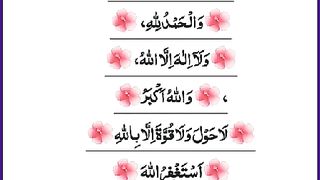 وَالْحَمْدُ لِلّٰهِ،
وَلَآ اِلٰهَ اِلَّا اللهُ،
، وَاللهُ اَكْبَرُ
لَا حَوْلَ وَلَا قُوَّةَ اِلَّا بِاللهِ
اَسْتَغْفِرُ اللهَ